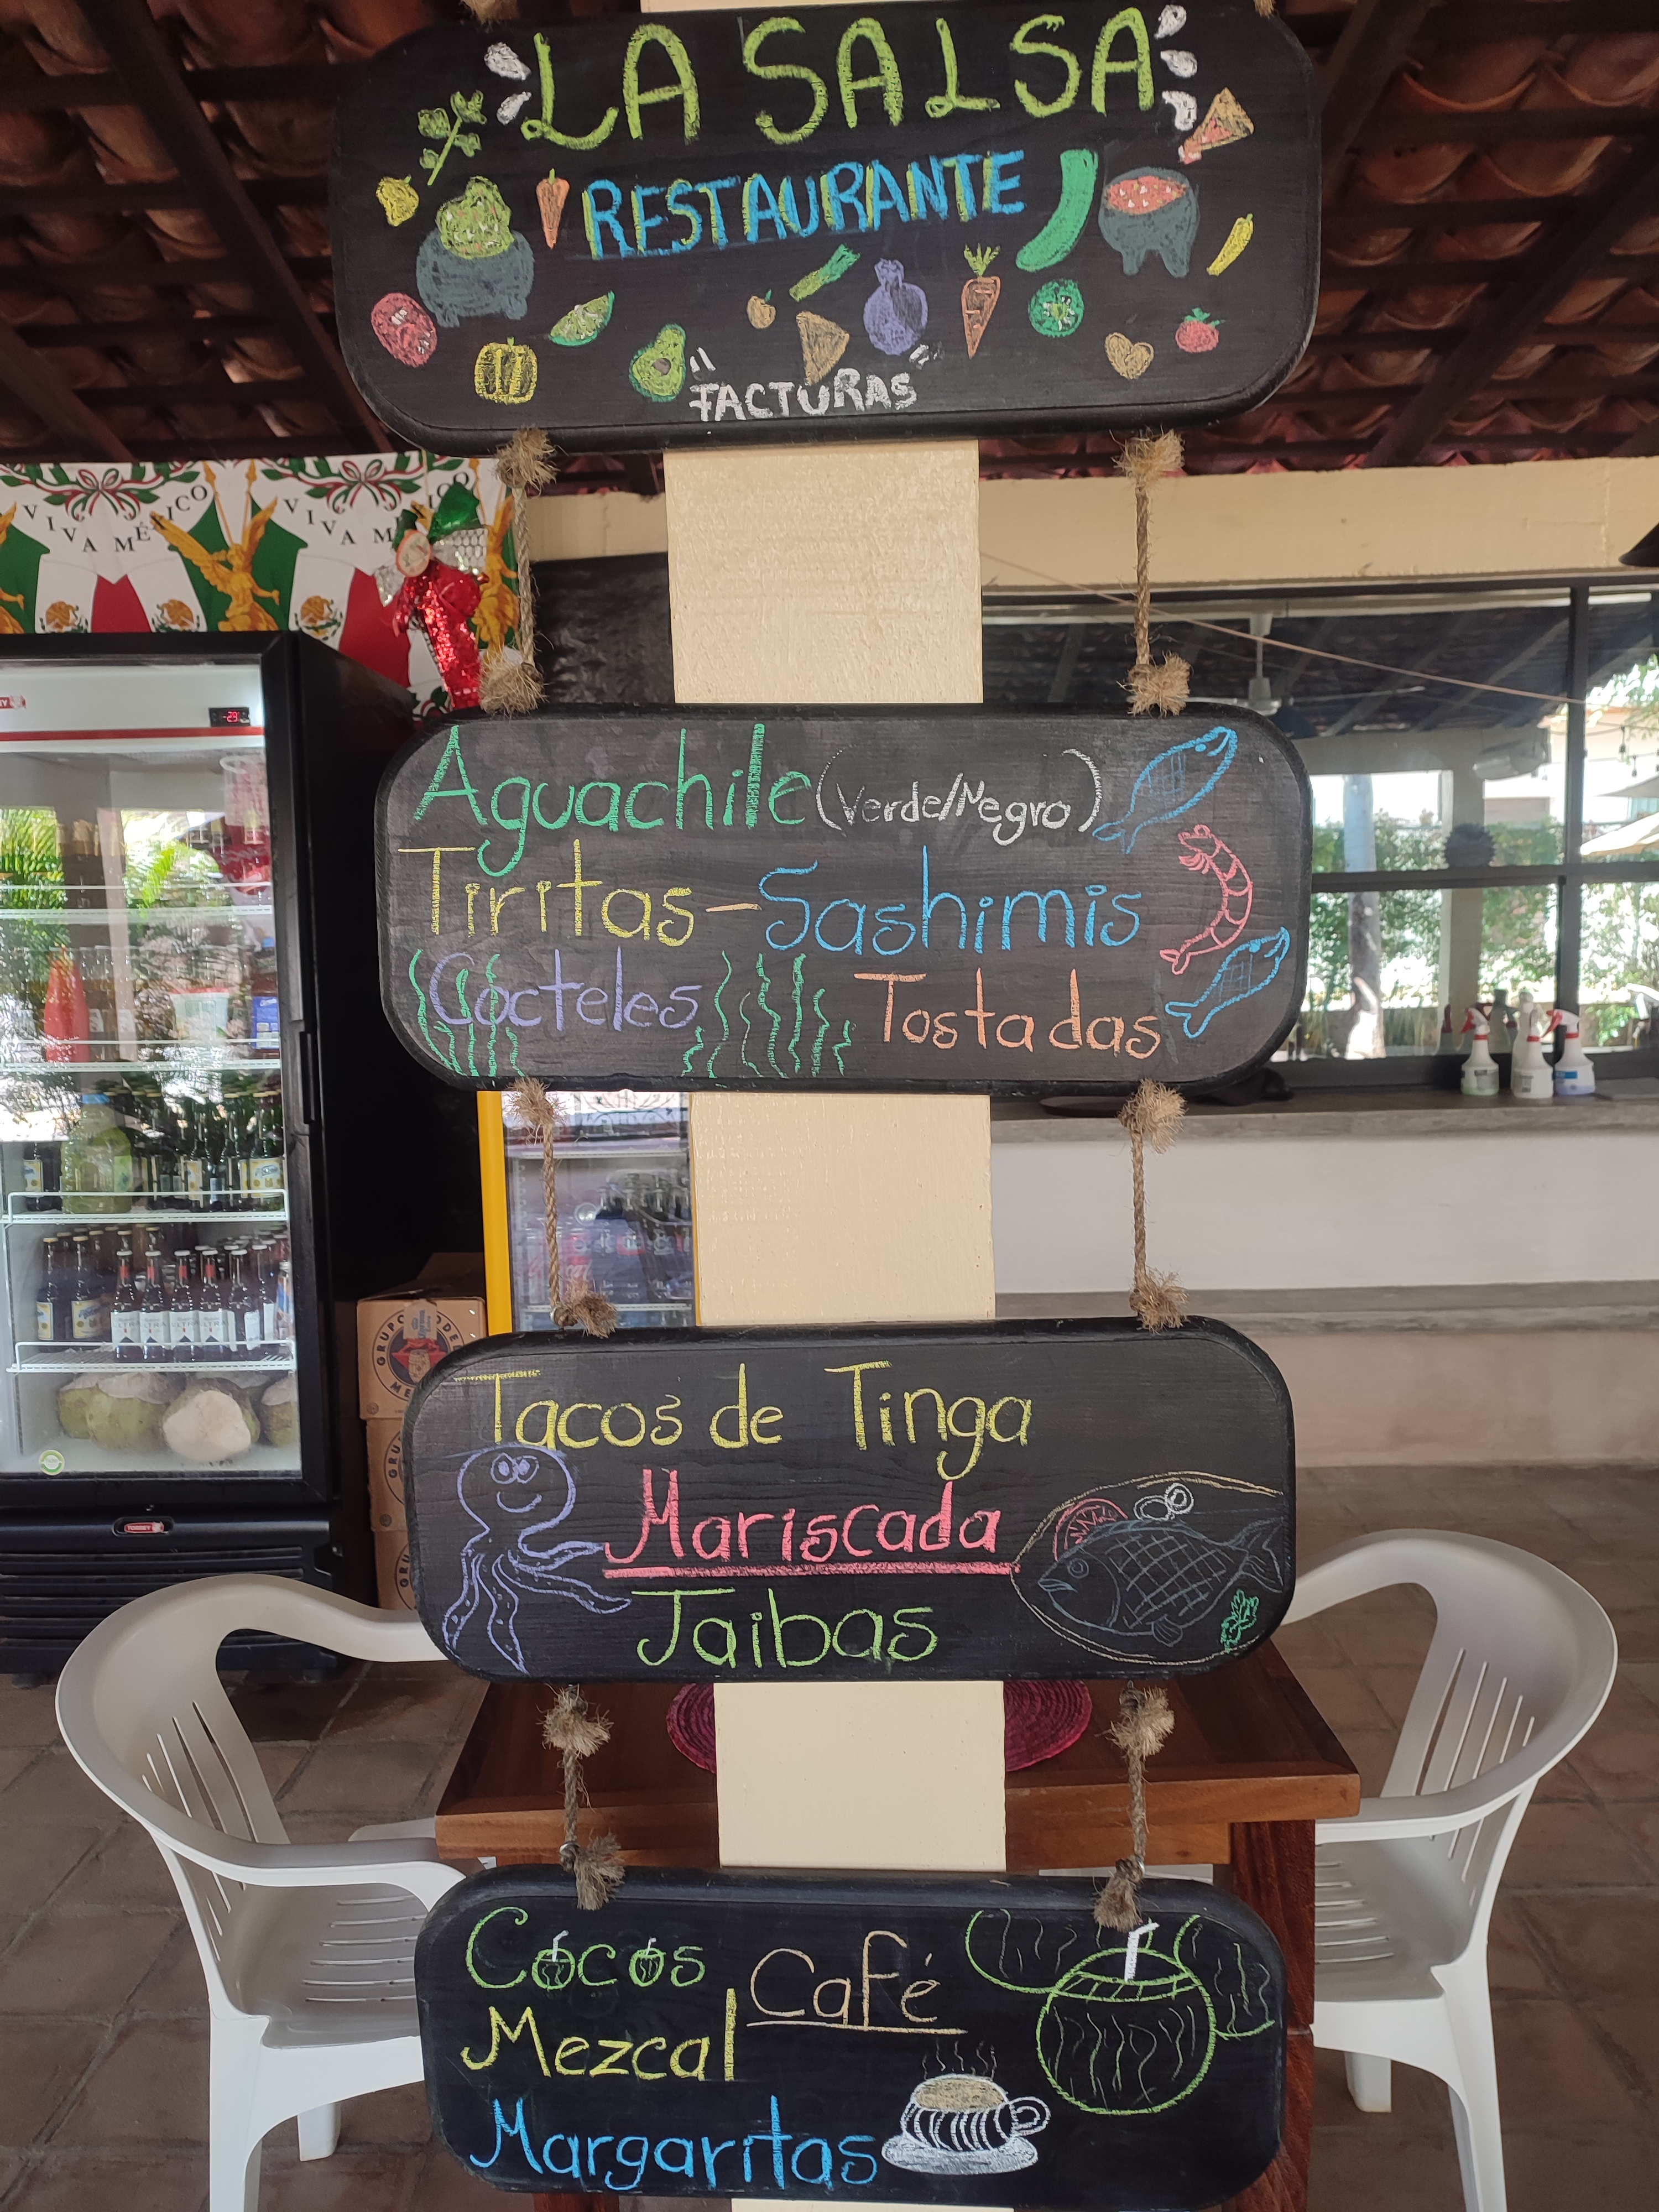 LA SALSA
RESTAURANTE
"FACTURAS"
VIVA MÉXICO
VIVA MÉXICO
-23
Aguachile (Verde/Negro)
Tiritas - Sashimis
Cocteles Tostadas
Tacos de Tinga
Mariscada
Jaibas
TORREY
Cocos Café
Mezcal
Margaritas